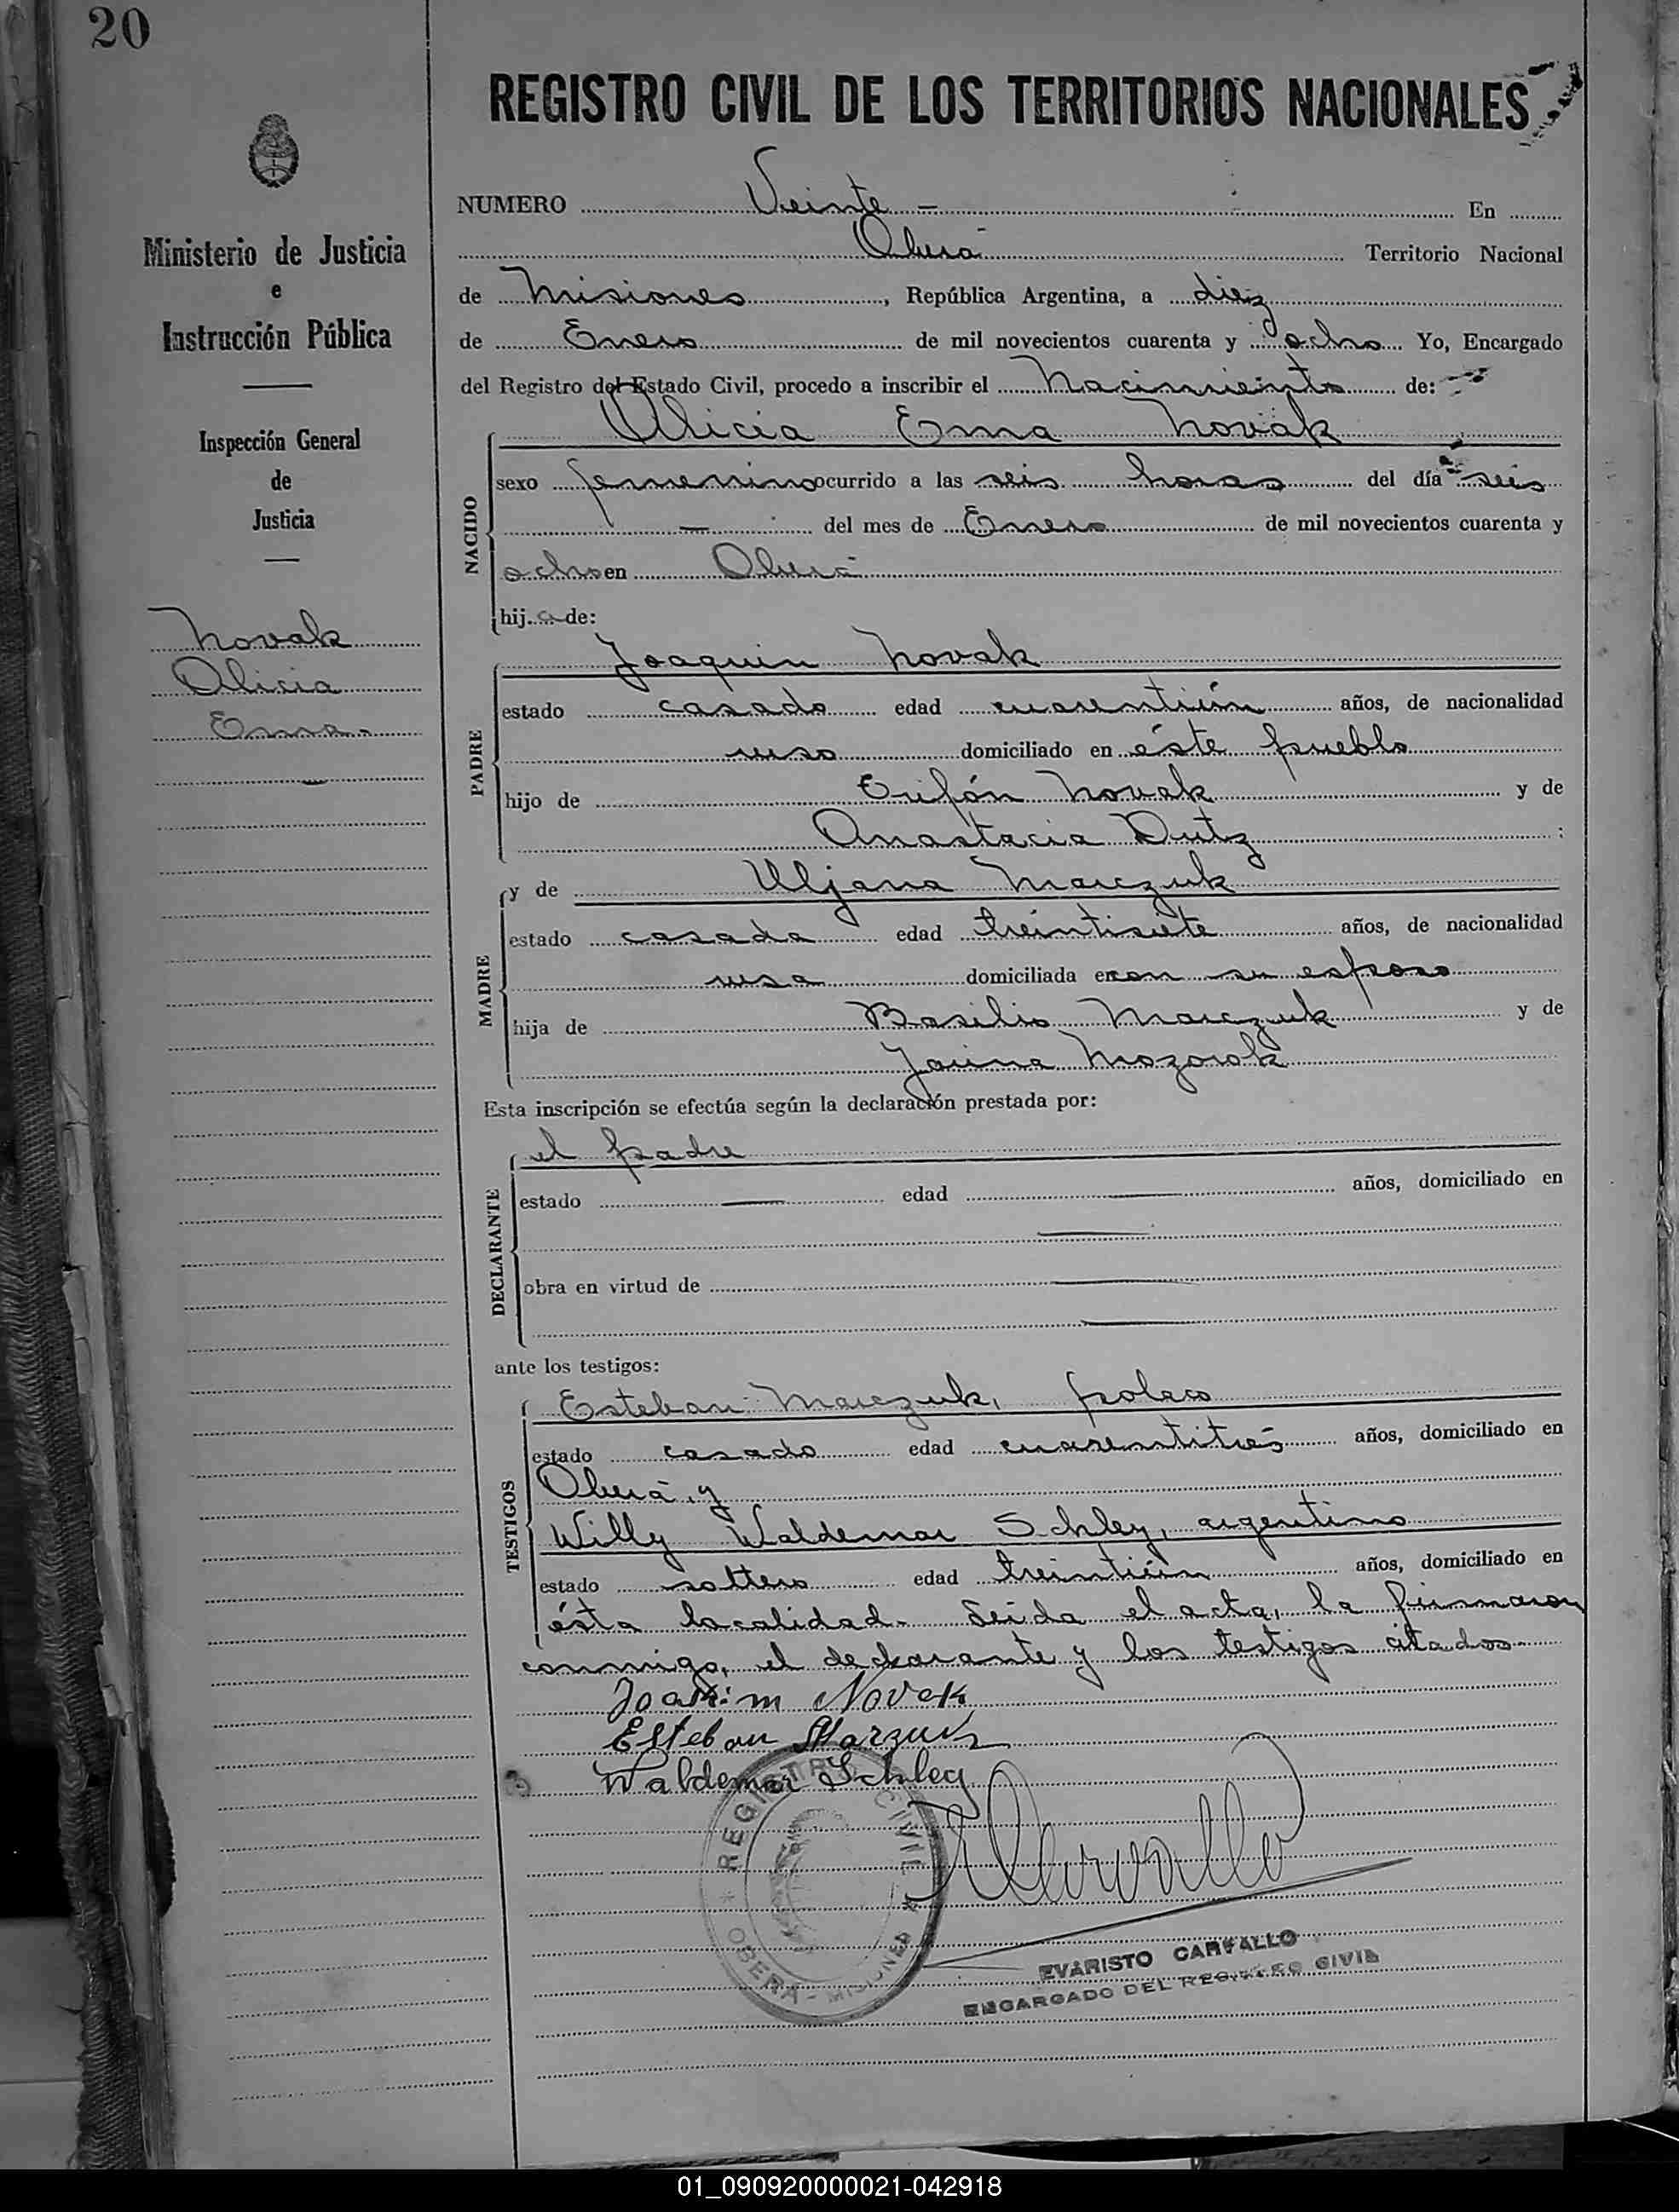 20
REGISTRO CIVIL DE LOS TERRITORIOS NACIONALES
Ministerio de Justicia
e
Instrucción Pública
Inspección General
de
Justicia
Novak
Alicia
Ema.
NUMERO Veinte - En
Oberá Territorio Nacional
de Misiones, República Argentina, a diez
de Enero de mil novecientos cuarenta y ocho Yo, Encargado
del Registro del Estado Civil, procedo a inscribir el Nacimiento de:
NACIDO
Alicia Ema Novak
sexo femenino ocurrido a las seis horas del día seis
— del mes de Enero de mil novecientos cuarenta y
ocho en Oberá
hija de:
PADRE
Joaquin Novak
estado casado edad cuarentiún años, de nacionalidad
ruso domiciliado en éste pueblo
hijo de Trifón Novak y de
Anastacia Dutz:
MADRE
y de Uljana Marczuk
estado casada edad treintisiete años, de nacionalidad
rusa domiciliada con su esposo
hija de Basilio Marczuk y de
Mozorok
Esta inscripción se efectúa según la declaración prestada por:
DECLARANTE
el padre
estado — edad — años, domiciliado en
obra en virtud de
ante los testigos:
TESTIGOS
Esteban Marczuk, polaco
estado casado edad cuarentitrés años, domiciliado en
Oberá, y
Willy Waldemar Schley, argentino
estado soltero edad treintiún años, domiciliado en
ésta localidad. Leída el acta, la firmaron
conmigo, el declarante y los testigos citados
Joakim Novak
Esteban Marzuk
Waldemar Schley
REGISTRO CIVIL
OBERÁ - MISIONES
EVARISTO CARVALLO
ENCARGADO DEL REGISTRO CIVIL
01_090920000021-042918